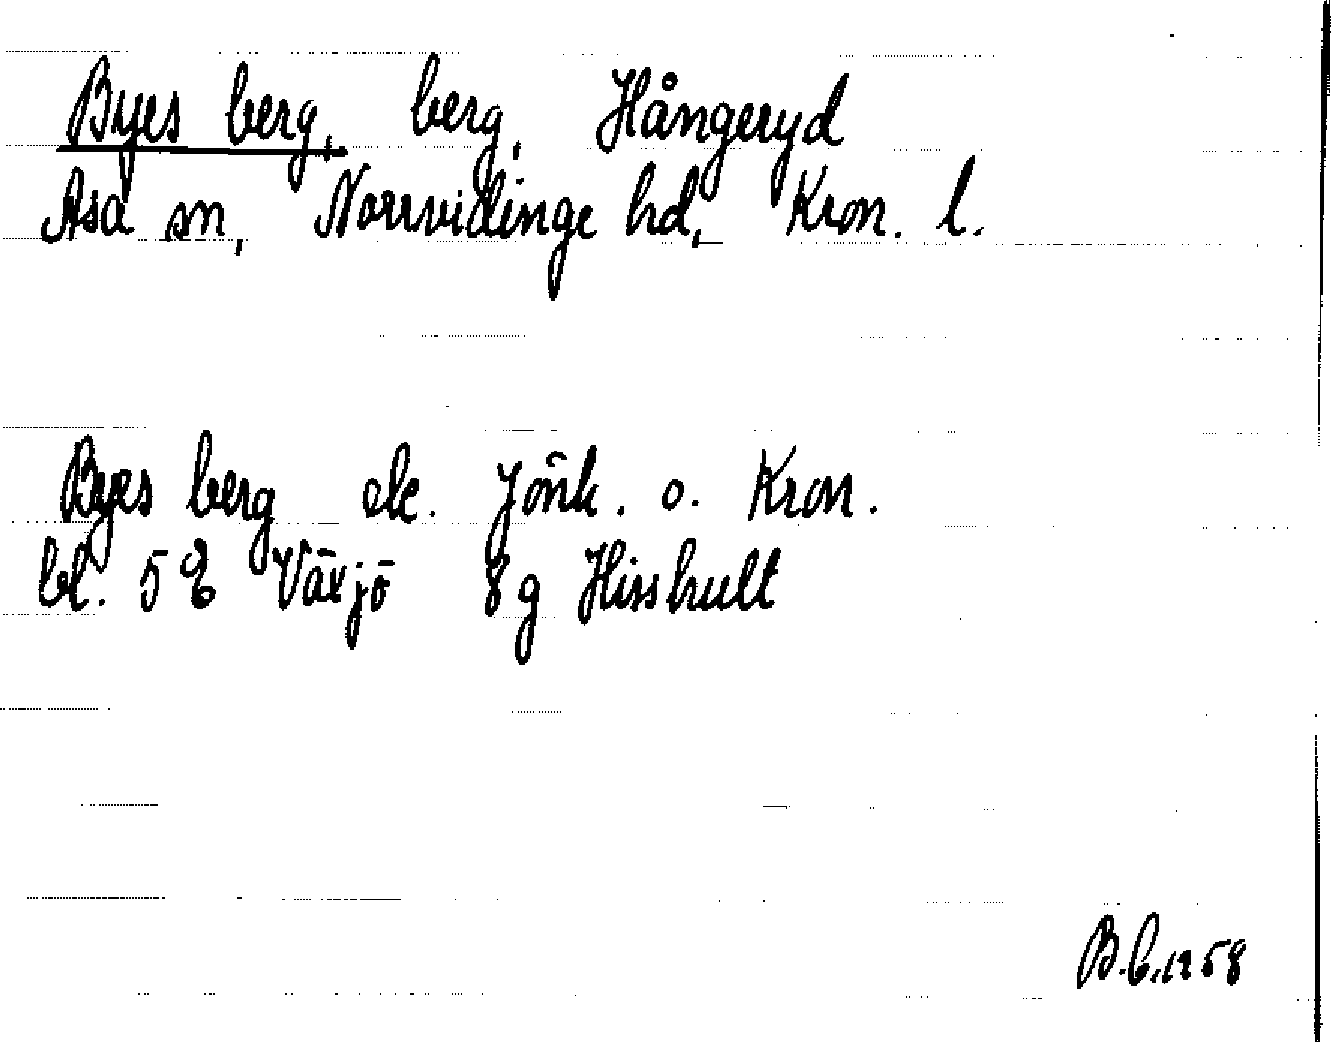 Byes berg, berg, Hångeryd
Asa sn, Norrvidinge hd, Kron. l.
Byes berg ek. Jönk. o. Kron.
bl. 5 E Växjö 8g Hisshult
B.C. 1958